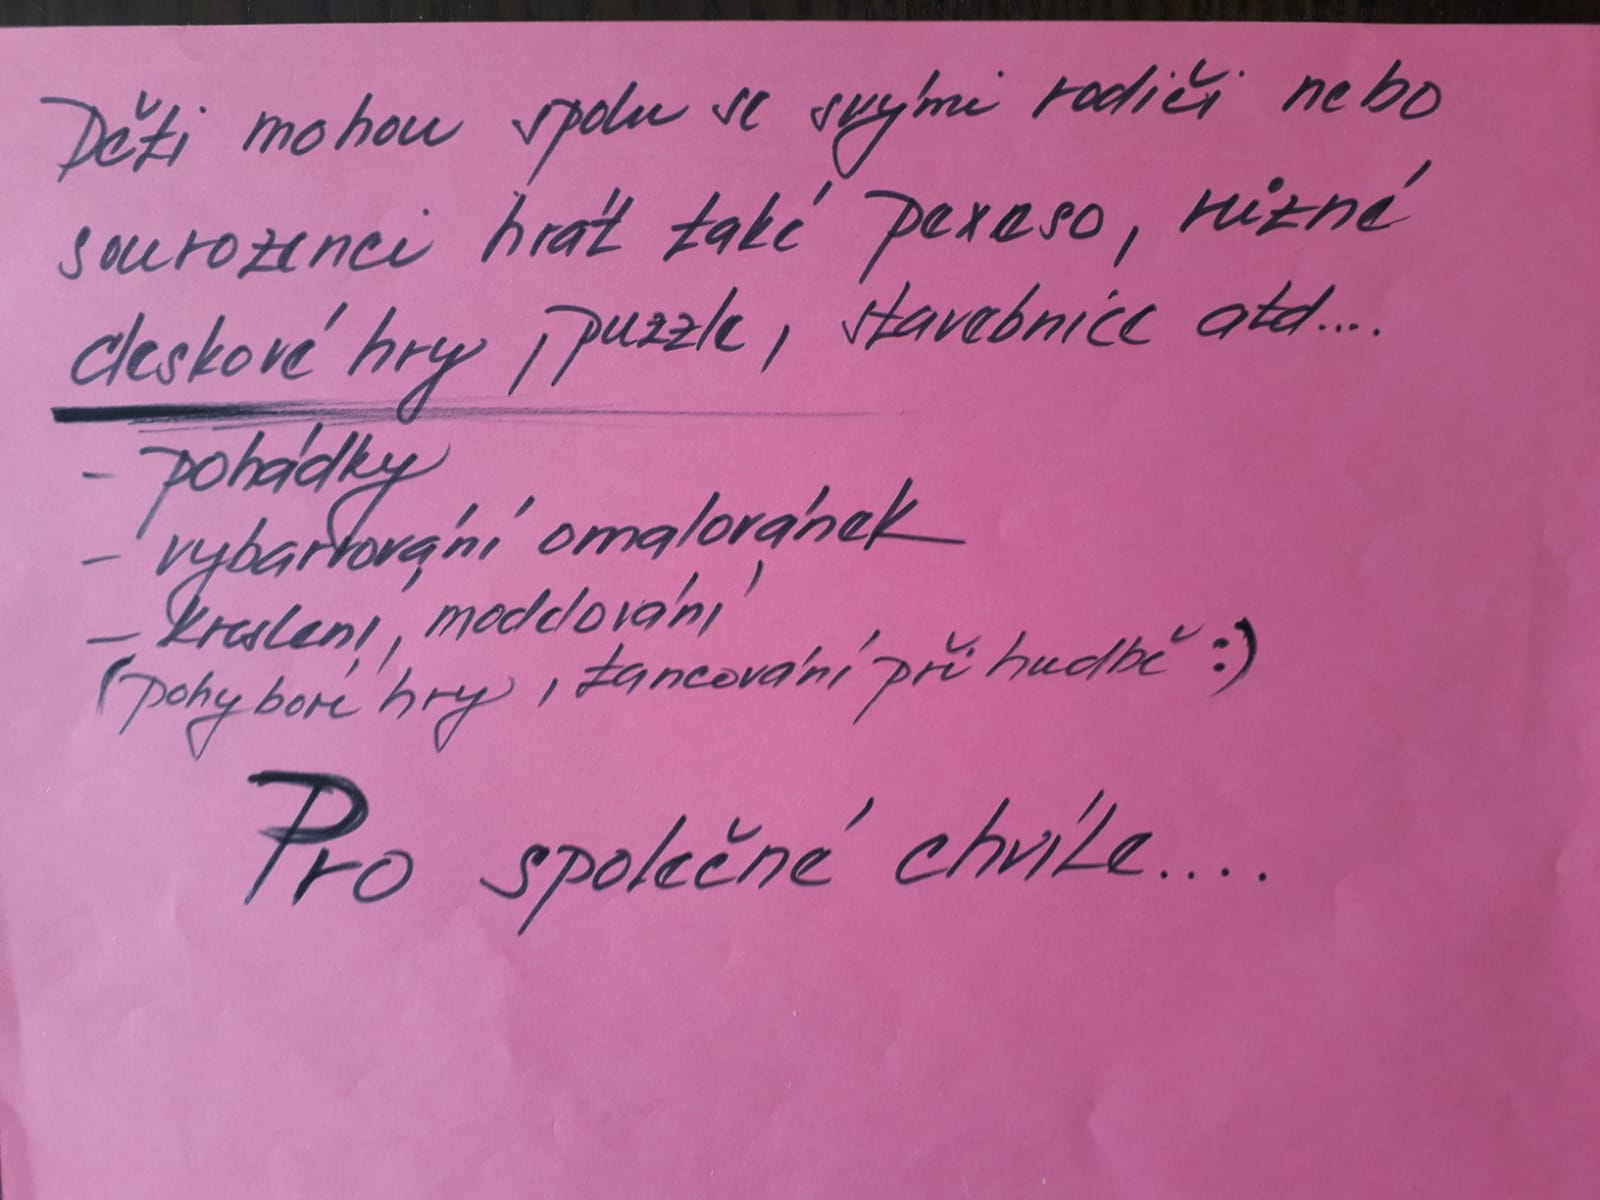 Děti mohou spolu se svými rodiči nebo
sourozenci hrát také pexeso, různé
deskové hry, puzzle, stavebnice atd....
- pohádky
- vybarvování omalovánek
- kreslení, modelování
(pohybové hry, tancování při hudbě :)
Pro společné chvíle....